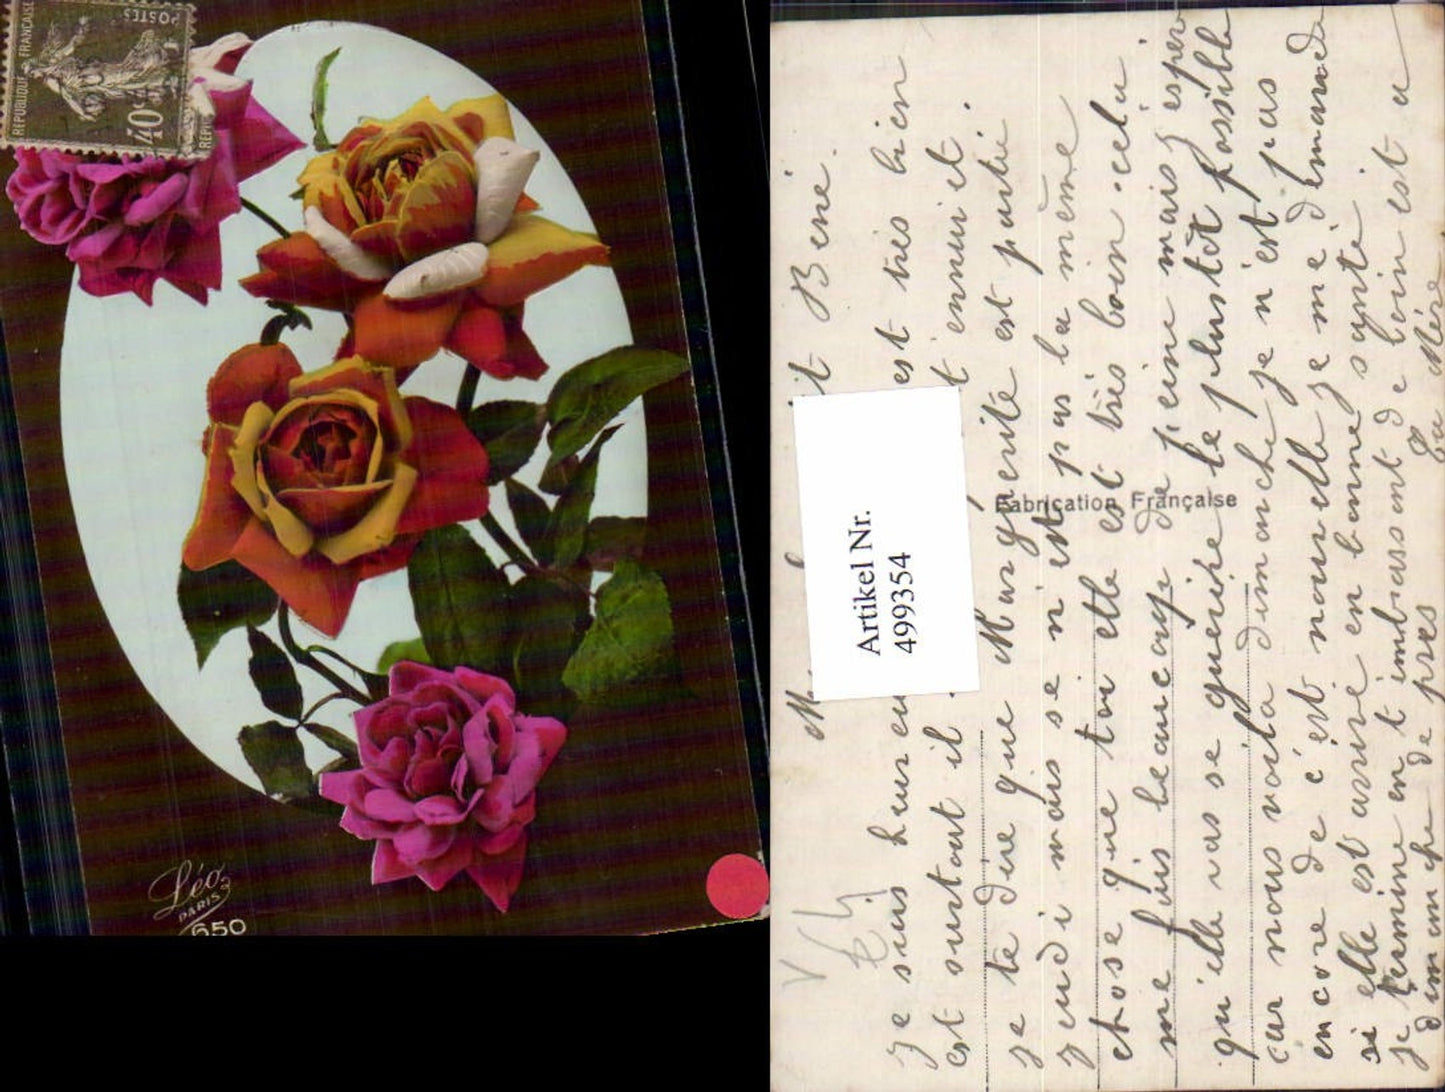 REPUBLIQUE FRANÇAISE
POSTES
40c
Léo
PARIS
650
Artikel Nr.
499354
Fabrication Française
René.
je suis heureu est très bien
est surtout il t ennui et.
je te dire que Marguerite est parti
jeudi mais se n'est pas la même
chose que toi elle et très loin cela
me fais beaucoup de peine mais j espère
qu'elle vas se guérire le plustôt possible
car nous voila dimanche je n'est pas
encore de c'est nouvelle je me demande
si elle est arrivé en bonne santé
je termine en t'imbrassent de loin est a
dimanche de pres
Ta Mère